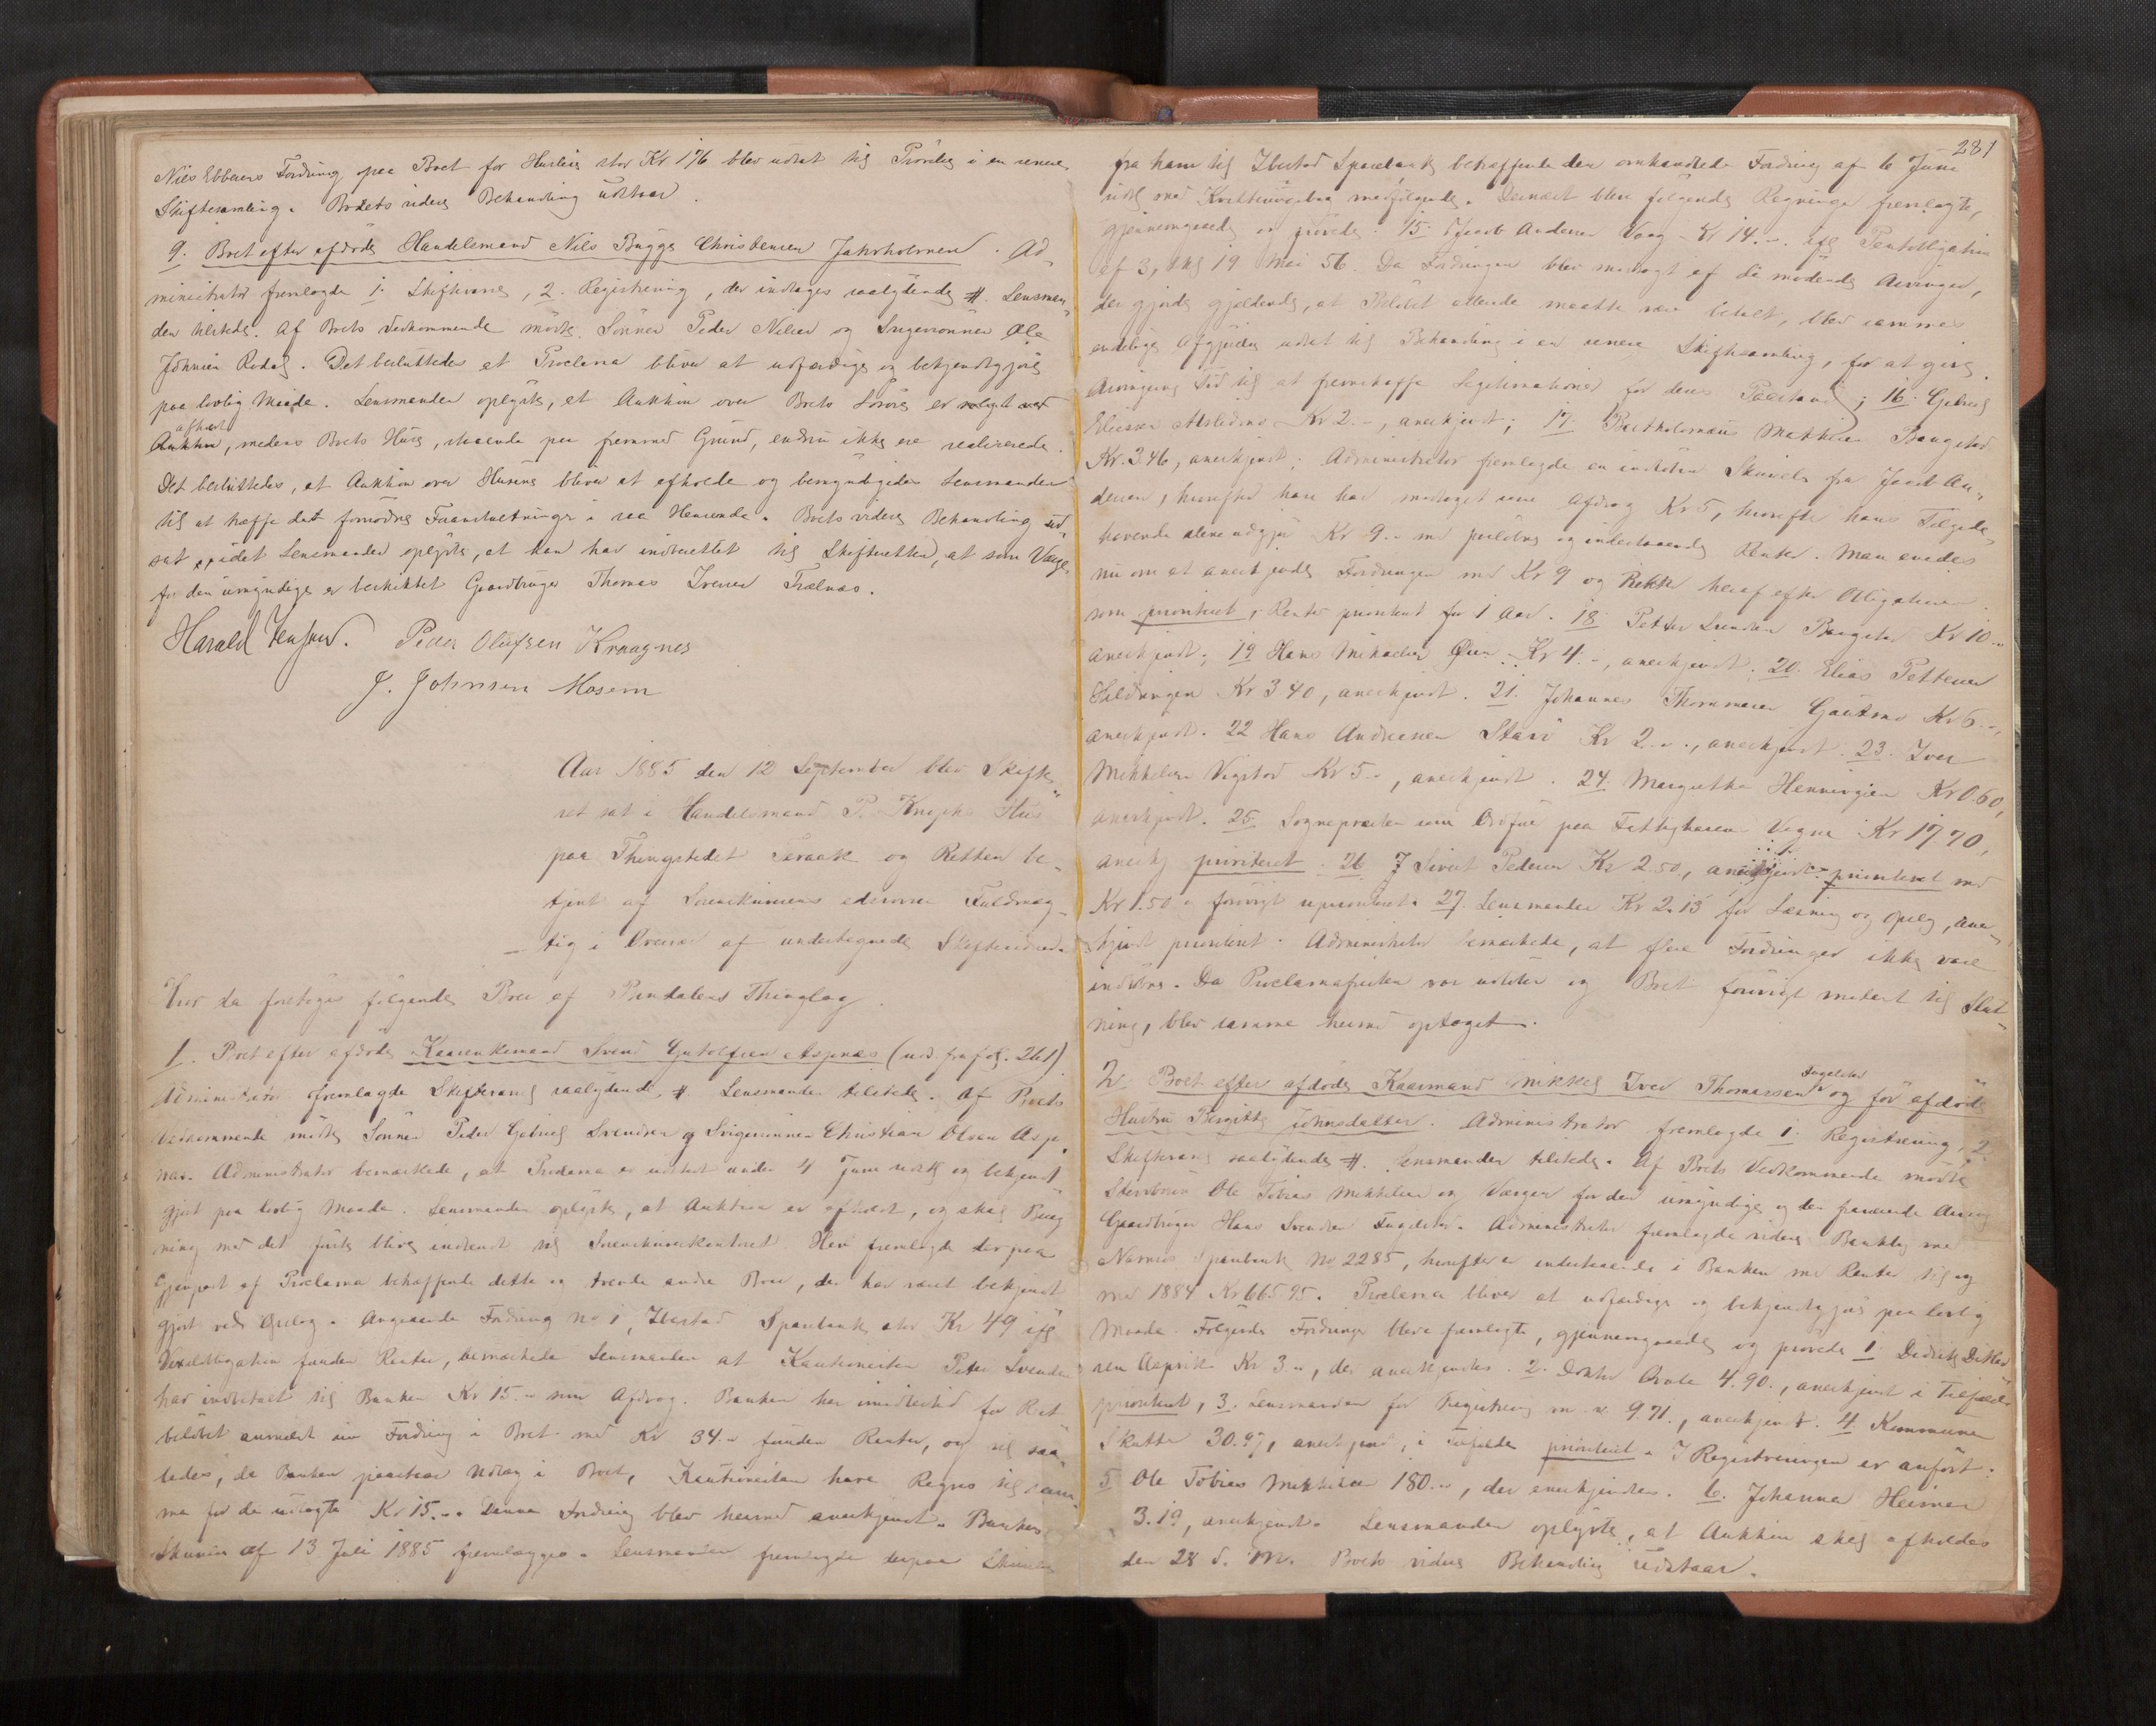 Nils Ebbesens Fordring paa Boet for Husleie stor Kr 176 blev udsat til Prövelse i en senere
Skiftesamling. Boets videre Behandling udstaar.
9. Boet efter afdöde Handelsmand Nils Bugge Christensen Jahrholmen. Ad-
ministrator fremlagde 1. Skiftevarsel, 2. Registrering, der indtages saalydende #. Lensman-
den tilstede. Af Boets Vedkommende mödte Sönnen Peder Nilsen og Svigersönnen Ole
Johnsen Rodal. Det besluttedes at Proclama bliver at udfærdige og bekjendtgjöre
paa lovlig Maade. Lensmanden oplyste, at Auktion over Boets Lösöre er
afholdt
Auktion, medens Boets Huse, staaende paa fremmed Grund, endnu ikke ere realiserede.
Det besluttedes, at Auktion over Husene bliver at afholde og bemyndigedes Lensmanden
til at træffe det fornödne Foranstaltninger i saa Henseende. Boets videre Behandling ud-
sat, idet Lensmanden oplyste, at han har indberettet til Skifteretten, at som Værge
for den umyndige er beskikket Gaardbruger Thomas Iversen Trælnæs.
Harald Jensen. Peder Olufsen Kraagnes
J. Johnsen Mosem
Aar 1885 den 12 September blev Skifte-
ret sat i Handelsmand P. Knophs Hus
paa Thingstedet Saraak og Retten be-
tjent af Sorenskriverens edsvorne Fuldmæg-
tig i Overvær af undertegnede Skiftevidner.
Hvor da foretoges følgende Boer af Thinglag.
1. Boet efter afdöde Kaarenkemand Svend Gutolfsen Aspenæs (ud. fra fol. 261).
Administrator fremlagde Skiftevarsel saalydende #. Lensmanden tilstede. Af Boets
Vedkommende mödte Sönnen Peder Gabriel Svendsen og Svigersönnen Christian Olsen Asp-
næs. Administrator bemærkede, at Proclama er udstedt under 4 Juni sidstl og bekjendt
gjort paa lovlig Maade. Lensmanden oplyste, at Auktion er afholdt, og skal Bereg
ning med det förste blive indsendt til Sorenskriverkontoret. Han fremlagde derpaa
Gjenpart af Proclama betræffende dette og trende andre Boer, der har været bekjendt
gjort ved Opslag. Angaaende Fordring No 1, Ibestad Sparebank stor Kr 49 ifl
Vexelobligation foruden Renter, bemærkede Lensmanden at Kautionisten Peter Svendsen
har indbetalt til Banken Kr 15.- som Afdrag. Banken har imidlertid for Rest
belöbet anmeldt sin Fordring i Boet med Kr 34.- foruden Renter, og vil saa-
ledes, da Banken paastaar Udlæg i Boet, Kautionisten have Regres til sam-
me for de udlagte Kr 15.-. Denne Fordring blev hermed anerkjendt. Bankens
Skrivelse af 13 Juli 1885 fremlægges. Lensmanden fremlagde derpaa Skrivelse
281
fra ham til Ibestad Sparebank betræffende den omhandlede Fordring af 6 Juni
sidstl med Kvitteringsbog medfølgende. Dernæst blev følgende Regninger fremlagte,
gjennemgaaede og prövede: 15. Jacob Andersen Vaag - Kr 14.-. ifl Pantobligation
af 3, thgl 19 Mai 56. Da Fordringen blev modsagt af de mödende Arvinger,
der gjorde gjældende, at Belöbet allerede maatte være betalt, blev sammes
endelige Afgjörelse udsat til Behandling i en senere Skiftesamling, for at give
Arvingerne Tid til at fremskaffe Legitimationer for deres Paastand; 16. Gabriel
Eliesen Kr 2.-, anerkjendt; 17. Bartholomæus Mikkelsen Baugstad
Kr. 3.46, anerkjendt; Administrator fremlagde en indlöben Skrivelse fra Jacob An-
dersen, hvorefter han har modtaget som Afdrag Kr 5, hvorefter hans Tilgode-
havende alene udgjör Kr 9.- med paalöbne og indestaaende Renter. Man enedes
nu om at anerkjende Fordringen med Kr 9 og Renter heraf efter Obligationen
som prioriteret, Renter prioriteret for 1 Aar. 18. Petter Svendsen Baugstad Kr 10.-
anerkjendt; 19. Hans Mikaelsen Öien Kr 4.-, anerkjendt. 20. Elias Pettersen
Kr 3 40, anerkjendt. 21. Johannes Thommesen Kr 6.-,
anerkjendt. 22 Hans Andreasen Kr 2.-., anerkjendt. 23. Iver
Mikkelsen Vigstad Kr 5.-, anerkjendt. 24. Margrethe Henningsen Kr 0.60,
anerkjendt. 25. Sognepræsten som Ordförer paa Fattigkassens Vegne Kr 17.70,
anerkj prioriteret. 26. Sivert Pedersen Kr 2.50, anerkjendt prioriteret med
Kr 1.50 i forövrigt uprioriteret. 27. Lensmanden Kr 2.15 for Læsning og Opslag, aner-
kjendt prioriteret. Administrator bemærkede, at flere Fordringer ikke vare
indlöbne. Da Proclamafristen var udlöben og Boet forövrigt modent til Slut-
ning, blev samme hermed optaget.
2. Boet efter afdöde Kaarmand Mikkel Iver Thomassen Fugelstad og för afdöde
Hustru Birgitte Johnsdatter. Administrator fremlagde 1. Registrering, 2.
Skiftevarsel saalydende #. Lensmanden tilstede. Af Boets Vedkommende mödte
Stervbosön Ole Tobias Mikkelsen og Værgen for den umyndige og den fraværende Arving
Gaardbruger Hans Svendsen Fugelstad. Administrator fremlagde videre Bankbog med
Næsnes Sparebank No 2285, hvorefter er indestaaende i Banken med Renter til og
med 1884 Kr 665.95. Proclama bliver at udfærdige og bekjendtgjöre paa lovlig
Maade. Følgende Fordringer bleve fremlagte, gjennemgaaede og prövede 1. Didrik Ditlev-
sen Kr 3.-, der anerkjendtes. 2. Doktor 4.90., anerkjendt i Tilfælde
prioriteret, 3. Lensmanden for Registrering m. v. 9.71., anerkjendt. 4. Kommune
Skatte 30.97, anerkjendt, i Tilfælde prioriteret. I Registreringen er anfört:
5 Ole Tobias Mikkelsen 180.-, der anerkjendtes. 6. Johanna Heimen
3.19, anerkjendt. Lensmanden oplyste, at Auktion skal afholdes
den 28 d. M. Boets videre Behandling udstaar.